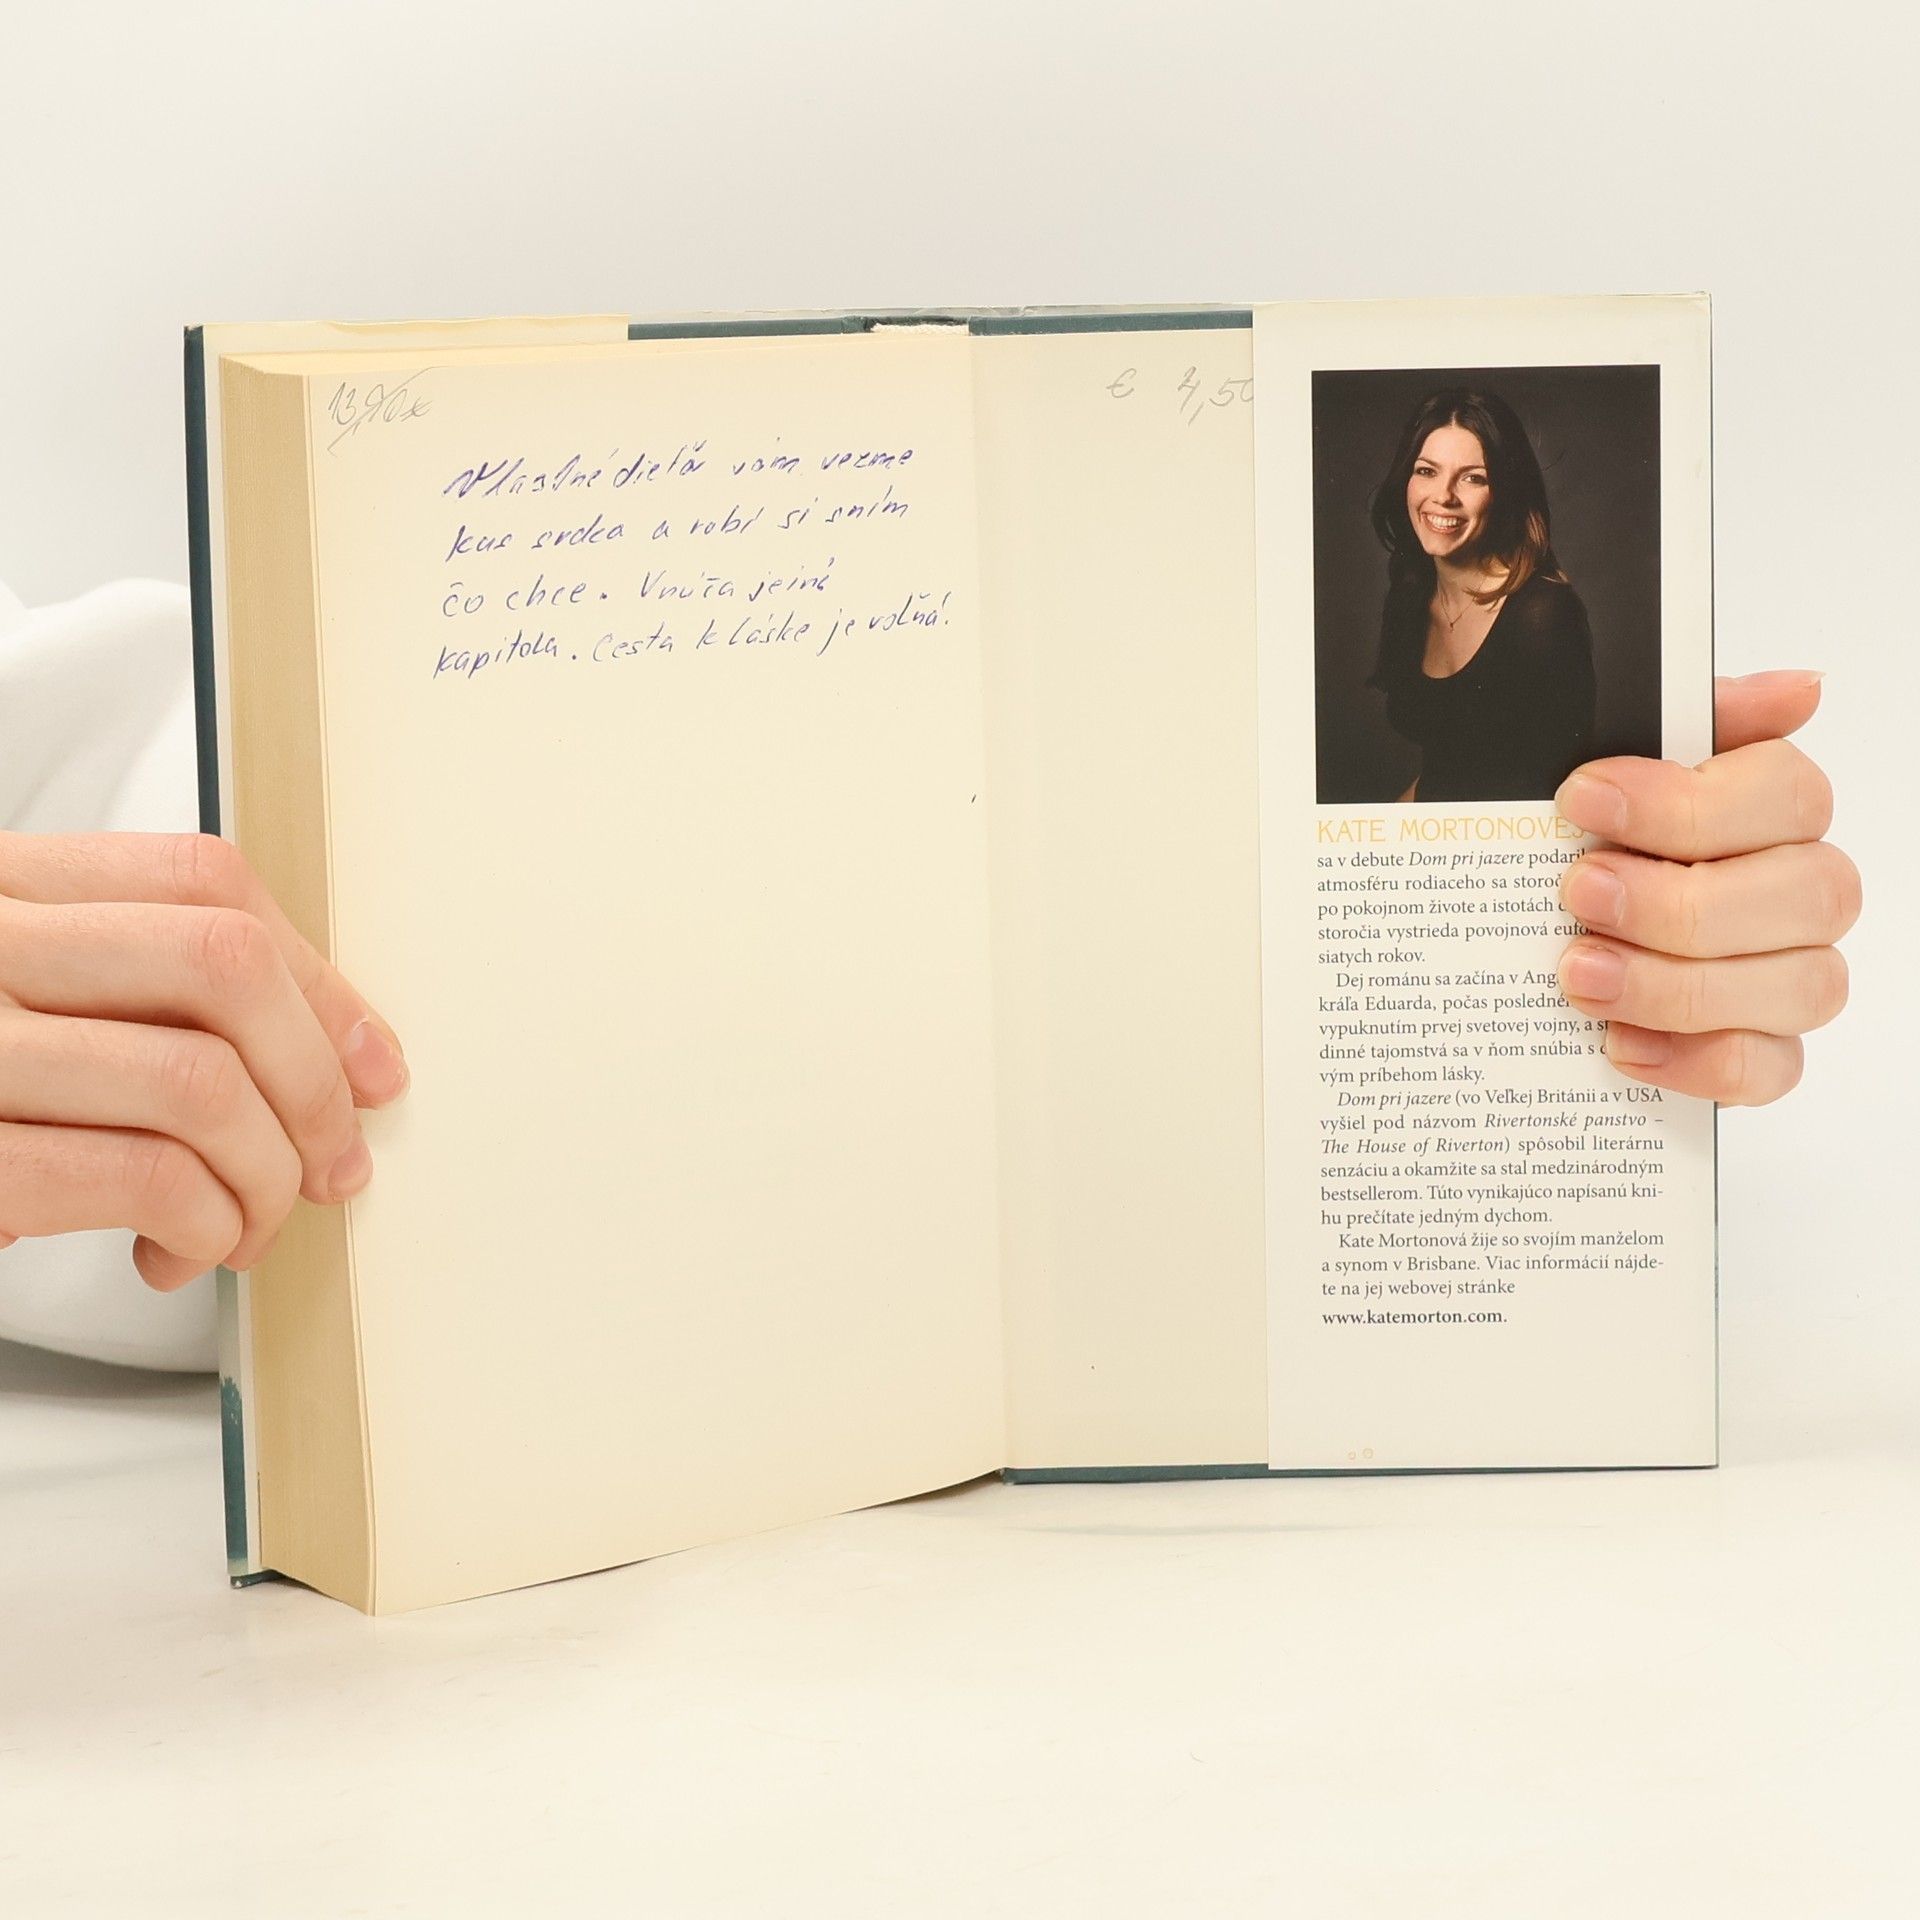 Vlastné dieťa vám vezme
kus srdca a robí si sním
čo chce. Vnúča je iná
kapitola. Cesta k láske je voľná!
€ 4,50
KATE MORTONOVEJ
sa v debute Dom pri jazere podaril
atmosféru rodiaceho sa storoč
po pokojnom živote a istotách
storočia vystrieda povojnová eufó
siatych rokov.
Dej románu sa začína v Ang
kráľa Eduarda, počas posledné
vypuknutím prvej svetovej vojny, a
dinné tajomstvá sa v ňom snúbia s
vým príbehom lásky.
Dom pri jazere (vo Veľkej Británii a v USA
vyšiel pod názvom Rivertonské panstvo –
The House of Riverton) spôsobil literárnu
senzáciu a okamžite sa stal medzinárodným
bestsellerom. Túto vynikajúco napísanú kni-
hu prečítate jedným dychom.
Kate Mortonová žije so svojím manželom
a synom v Brisbane. Viac informácií nájde-
te na jej webovej stránke
www.katemorton.com.